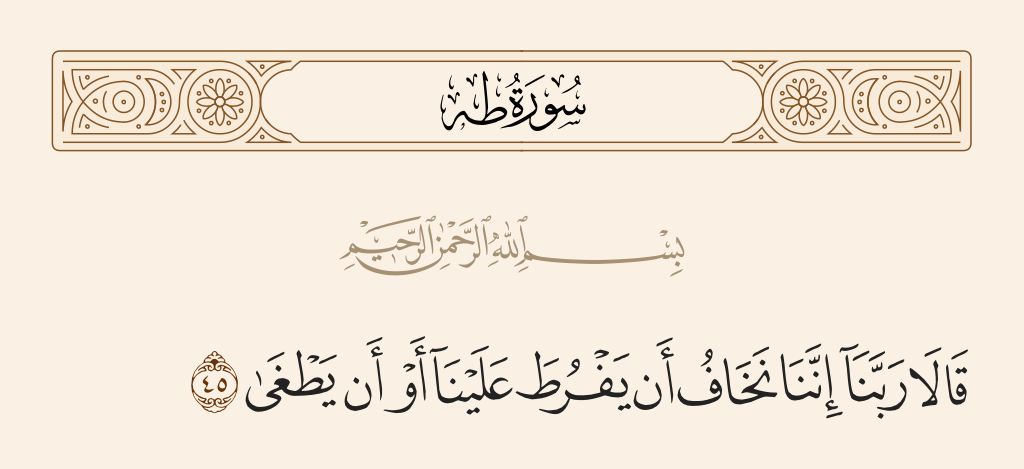 سُورَةُ طه
بِسْمِ ٱللَّهِ ٱلرَّحْمَٰنِ ٱلرَّحِيمِ
قَالَا رَبَّنَآ إِنَّنَا نَخَافُ أَن يَفْرُطَ عَلَيْنَآ أَوْ أَن يَطْغَىٰ ٤٥